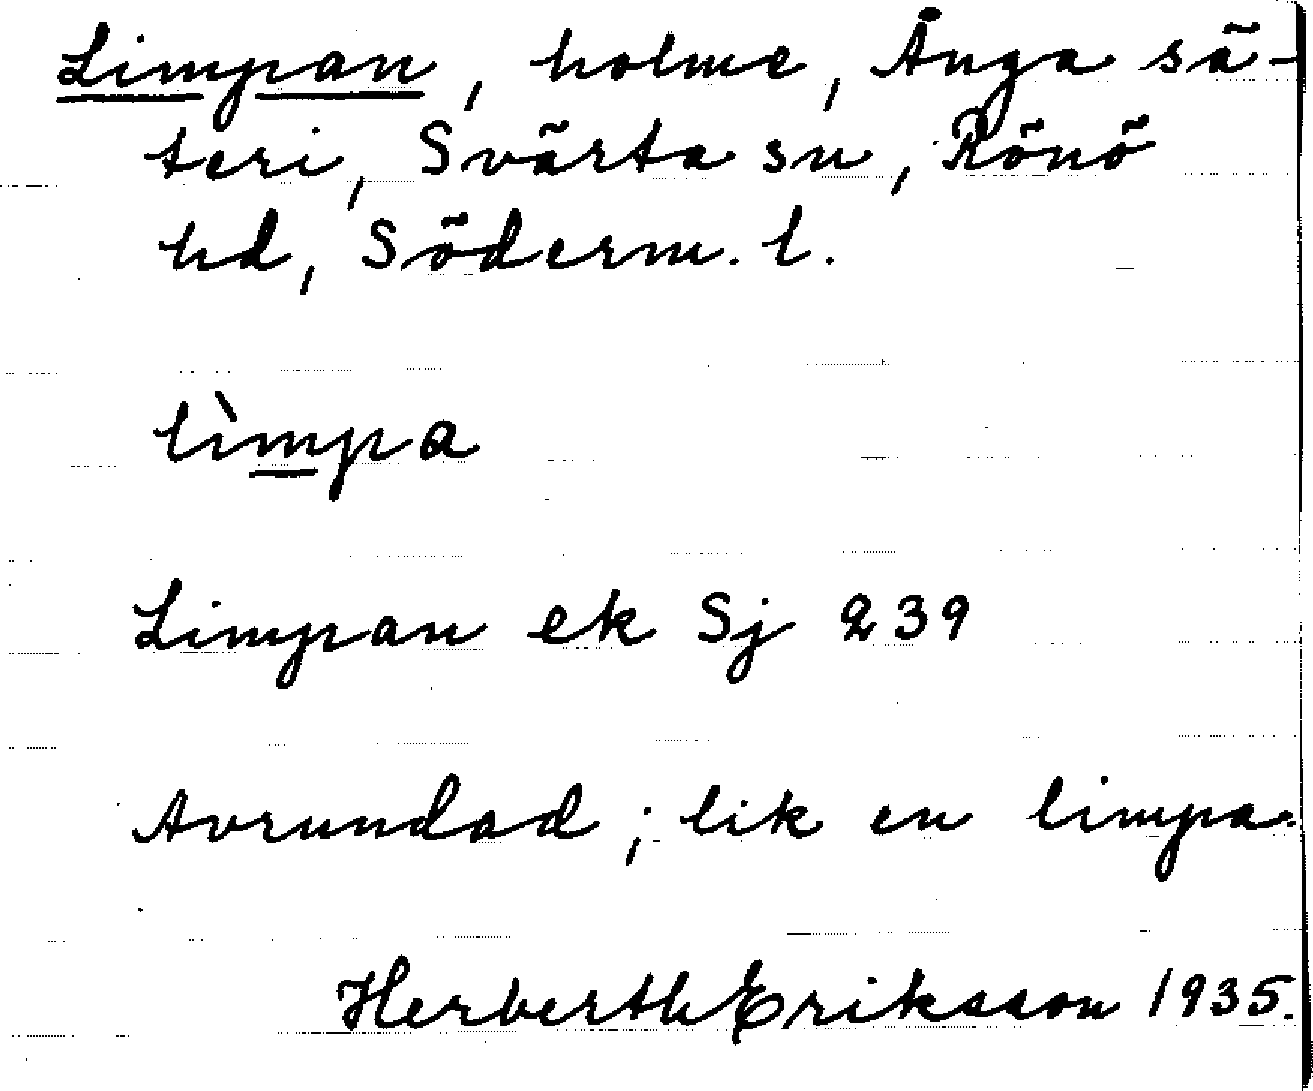 Limpan, holme, Ånga sä-
teri, Svärta sn, Rönö
hd, Söderm. l.
lìmpa
Limpan ek Sj 239
Avrundad; lik en limpa.
Herberth Eriksson 1935.